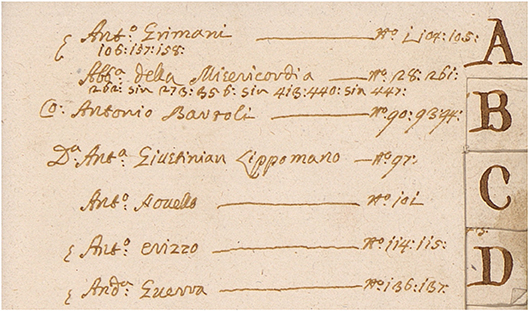 Ant.º Grimani N.º 1.104:105:
106:157:158:
Abb.ª della Misericordia N.º 28:261:
262: sin 273:356: sin 413:440: sin 447:
Co: Antonio Bavroli N.º 90:93:94:
D.ª Ant.ª Giustinian Lippomano N.º 97:
Ant.º Novello N.º 101
Ant.º Erizzo N.º 114:115:
And.ª Guerra N.º 136:137:
A
B
C
D